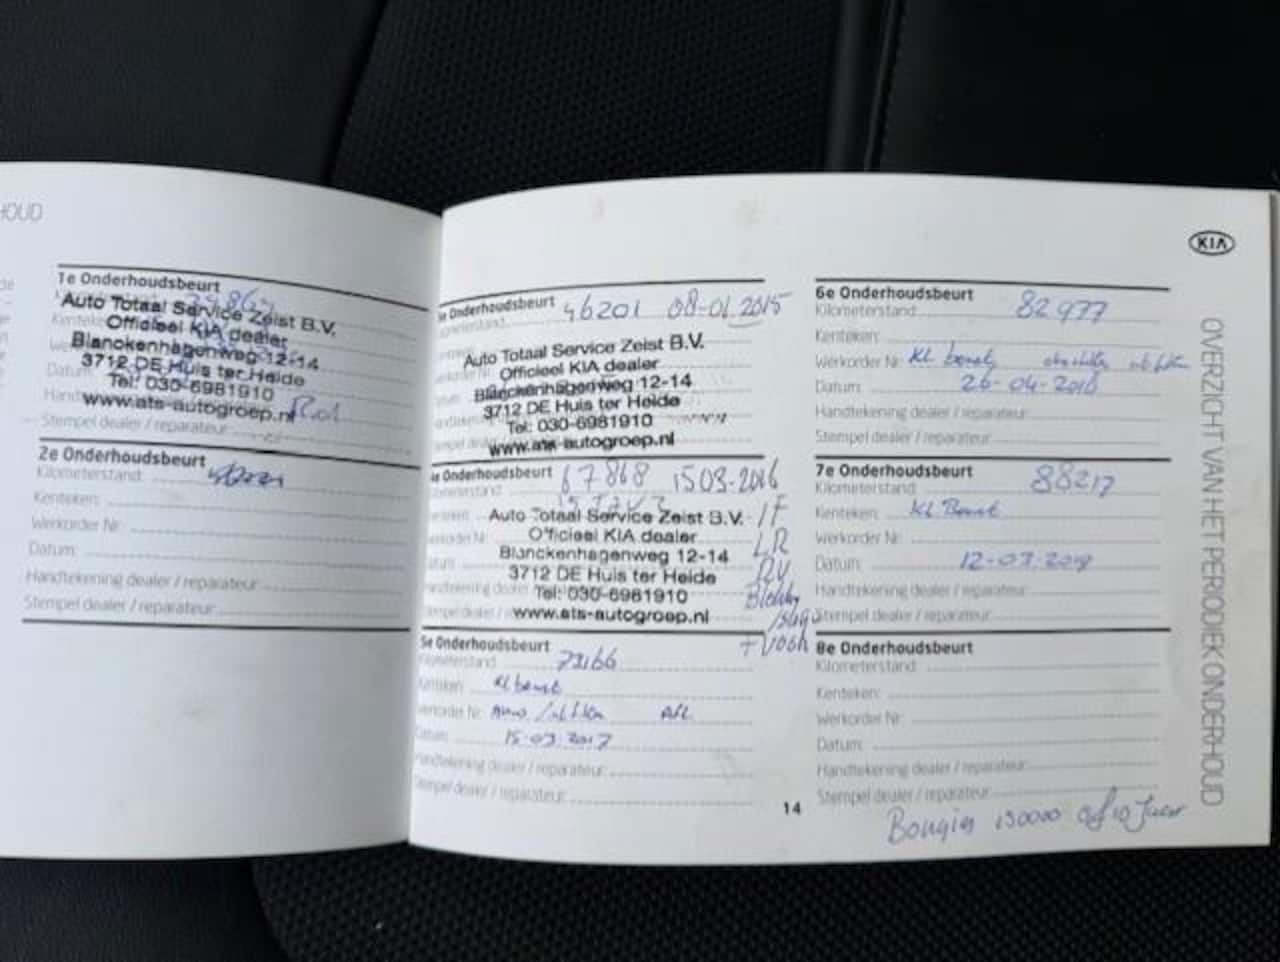 HOUD
1e Onderhoudsbeurt
Auto Totaal Service Zeist B.V.
Officieel KIA dealer
Blanckenhagenweg 12-14
3712 DE Huis ter Heide
Tel: 030-6981910
www.ats-autogroep.nl
Stempel dealer / reparateur:
2e Onderhoudsbeurt
Kilometerstand:
Kenteken:
Werkorder Nr:
Datum:
Handtekening dealer / reparateur:
Stempel dealer / reparateur:
Onderhoudsbeurt 46201 08-01-2015
Auto Totaal Service Zeist B.V.
Officieel KIA dealer
Blanckenhagenweg 12-14
3712 DE Huis ter Heide
Tel: 030-6981910
www.ats-autogroep.nl
Onderhoudsbeurt 67868 15 03-2016
Auto Totaal Service Zeist B.V.
Officieel KIA dealer
Blanckenhagenweg 12-14
3712 DE Huis ter Heide
Tel: 030-6981910
www.ats-autogroep.nl
LR
RV
5e Onderhoudsbeurt
Kilometerstand 73166
Kenteken: kl beurt
Werkorder Nr:
Datum: 15-03-2017
Handtekening dealer / reparateur:
Stempel dealer / reparateur:
14
KIA
6e Onderhoudsbeurt
Kilometerstand 82977
Kenteken:
Werkorder Nr: KL beurt
Datum: 26-04-2018
Handtekening dealer / reparateur:
Stempel dealer / reparateur:
7e Onderhoudsbeurt
Kilometerstand 88217
Kenteken: KL Beurt
Werkorder Nr:
Datum:
Handtekening dealer / reparateur:
Stempel dealer / reparateur:
8e Onderhoudsbeurt
Kilometerstand:
Kenteken:
Werkorder Nr:
Datum:
Handtekening dealer / reparateur:
Stempel dealer / reparateur:
Bougies 150000 of 10 Jaar
OVERZICHT VAN HET PERIODIEK ONDERHOUD